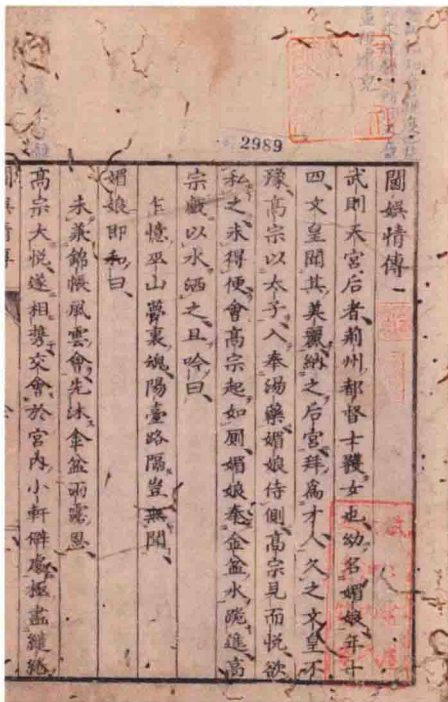 2989
閫娛情傳一
武則天宮后者荊州都督士彠女也幼名媚娘年十
四文皇聞其美麗納之后宮拜為才人久之文皇不
豫高宗以太子入奉湯藥媚娘侍側高宗見而悅欲
私之未得便會高宗起如厠媚娘奉金盆水跪進高
宗戲以水洒之且吟曰
乍憶巫山夢裏魂陽臺路隔豈無聞
媚娘即和曰
未承錦帳風雲會先沐金盆雨露恩
高宗大悅遂相携交會於宮內小軒僻處極盡繾綣